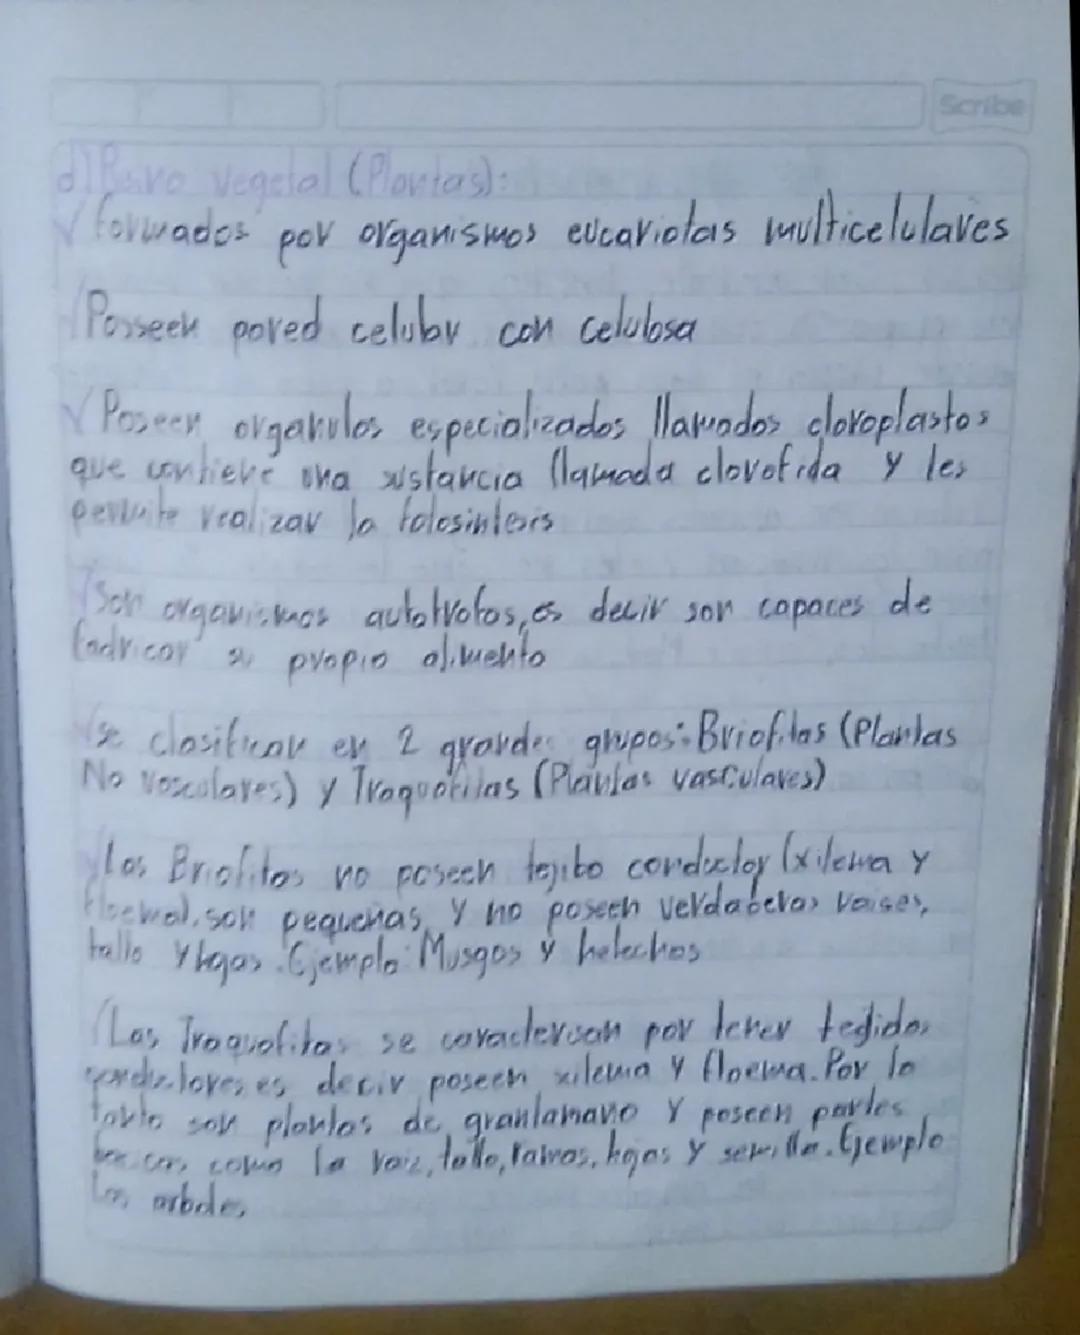 Scribe
d) Reino vegetal (Plantas):
√ formados por organismos eucariotas multicelulares
√ Posseen pared celular con celulosa
√ Poseen organulos especializados llamados cloroplastos
que contiene una sustancia llamada clorofida y les
permite realizar la fotosintesis
√ Son organismos autotrofos, es decir son capaces de
fadricar su propio alimento
√ se clasifican en 2 grandes grupos: Briofitas (Plantas
No vasculares) y Traquofitas (Plantas vasculares)
√ Las Briofitas no poseen tejito conductor (xilema y
floema), son pequeñas, y no poseen verdaderas raises,
tallo y hojas. Ejemplo: Musgos y helechos
√ Las Traquofitas se caractersan por tener tegidos
conductores, es decir, poseen xilema y floema. Por lo
tanto son plantas de grantamaño y poseen partes
basicas como la raiz, tallo, ramas, hojas y semilla. Ejemplo
Los arboles